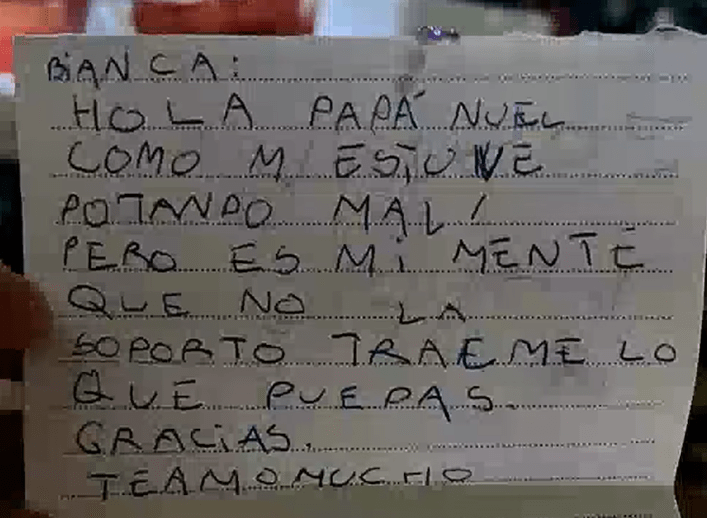 BiANCA:
HOLA PAPÁ NUEL
COMO M ESTUVE
POTANDO MAL
PERO ES Mi MENTE
QUE NO LA
SOPORTO TRAEME LO
QUE PUEDAS.
GRACiAS.
TEAMOMUCHO